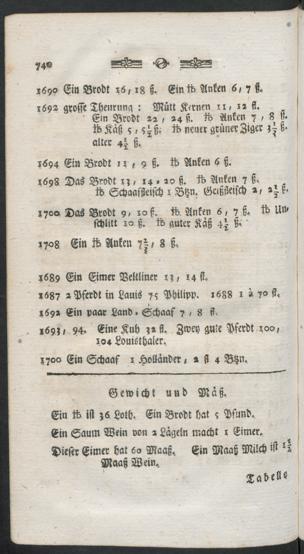 740
1690 Ein Brodt 16, 18 ß. Ein ℔ Anken 6, 7 ß.
1692 grosse Theurung: Mütt Kernen 11, 12 fl.
Ein Brodt 22, 24 ß. ℔ Anken 7, 8 ß.
℔ Käß 5, 5½ ß. ℔ neuer grüner Ziger 3½ ß.
alter 4½ ß.
1694 Ein Brodt 11, 9 ß. ℔ Anken 6 ß.
1698 Das Brodt 13, 14, 20 ß. ℔ Anken 7 ß.
℔ Schaaffleisch 1 Btzn. Geißfleisch 2, 2½ ß.
1700 Das Brodt 9, 10 ß. ℔ Anken 6, 7 ß. ℔ Un-
schlitt 10 ß. ℔ guter Käß 4½ ß.
1708 Ein ℔ Anken 7½, 8 ß.
1689 Ein Eimer Veltliner 13, 14 fl.
1687 2 Pferdt in Lauis 75 Philipp. 1688 1 à 70 fl.
1692 Ein paar Land-Schaaf 7, 8 fl.
1693, 94. Eine Kuh 32 fl. Zwey gute Pferdt 100,
104 Louisthaler.
1700 Ein Schaaf 1 Holländer, 2 fl 4 Btzn.
Gewicht und Mäß.
Ein ℔ ist 36 Loth. Ein Brodt hat 5 Pfund.
Ein Saum Wein von 2 Lägeln macht 1 Eimer.
Dieser Eimer hat 60 Maaß. Ein Maaß Milch ist 1½
Maaß Wein.
Tabell